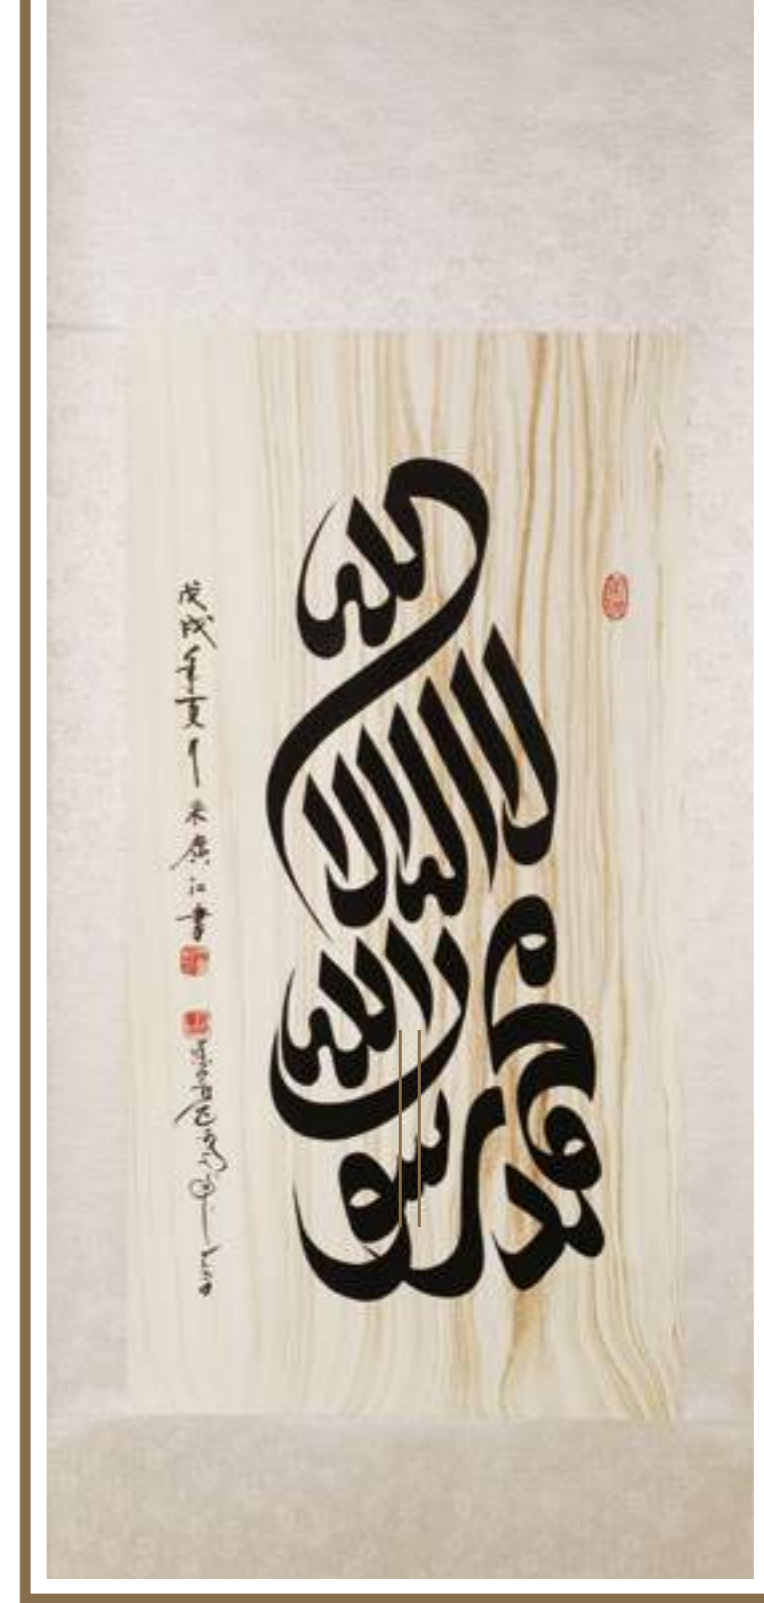 لا إله إلا الله محمد رسول الله
戊戌年夏月米廣江書